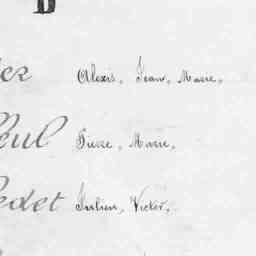 D
er Alexis, Jean, Marie,
eul Pierre, Marie,
edet Julien, Victor,